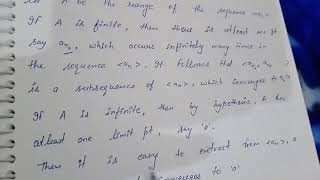 Let A be the range of the sequence <an>.
If A is finite, then there is atleast one pt
say an₀, which occurs infinitely many times in
the sequence <an>. It follows that
is a subsequence of <an>, which converges to
If A is infinite, then by hypothesis, A has
atleast one limit pt, say 'a'.
Then it is easy to extract from <an>, a
converges to 'a'